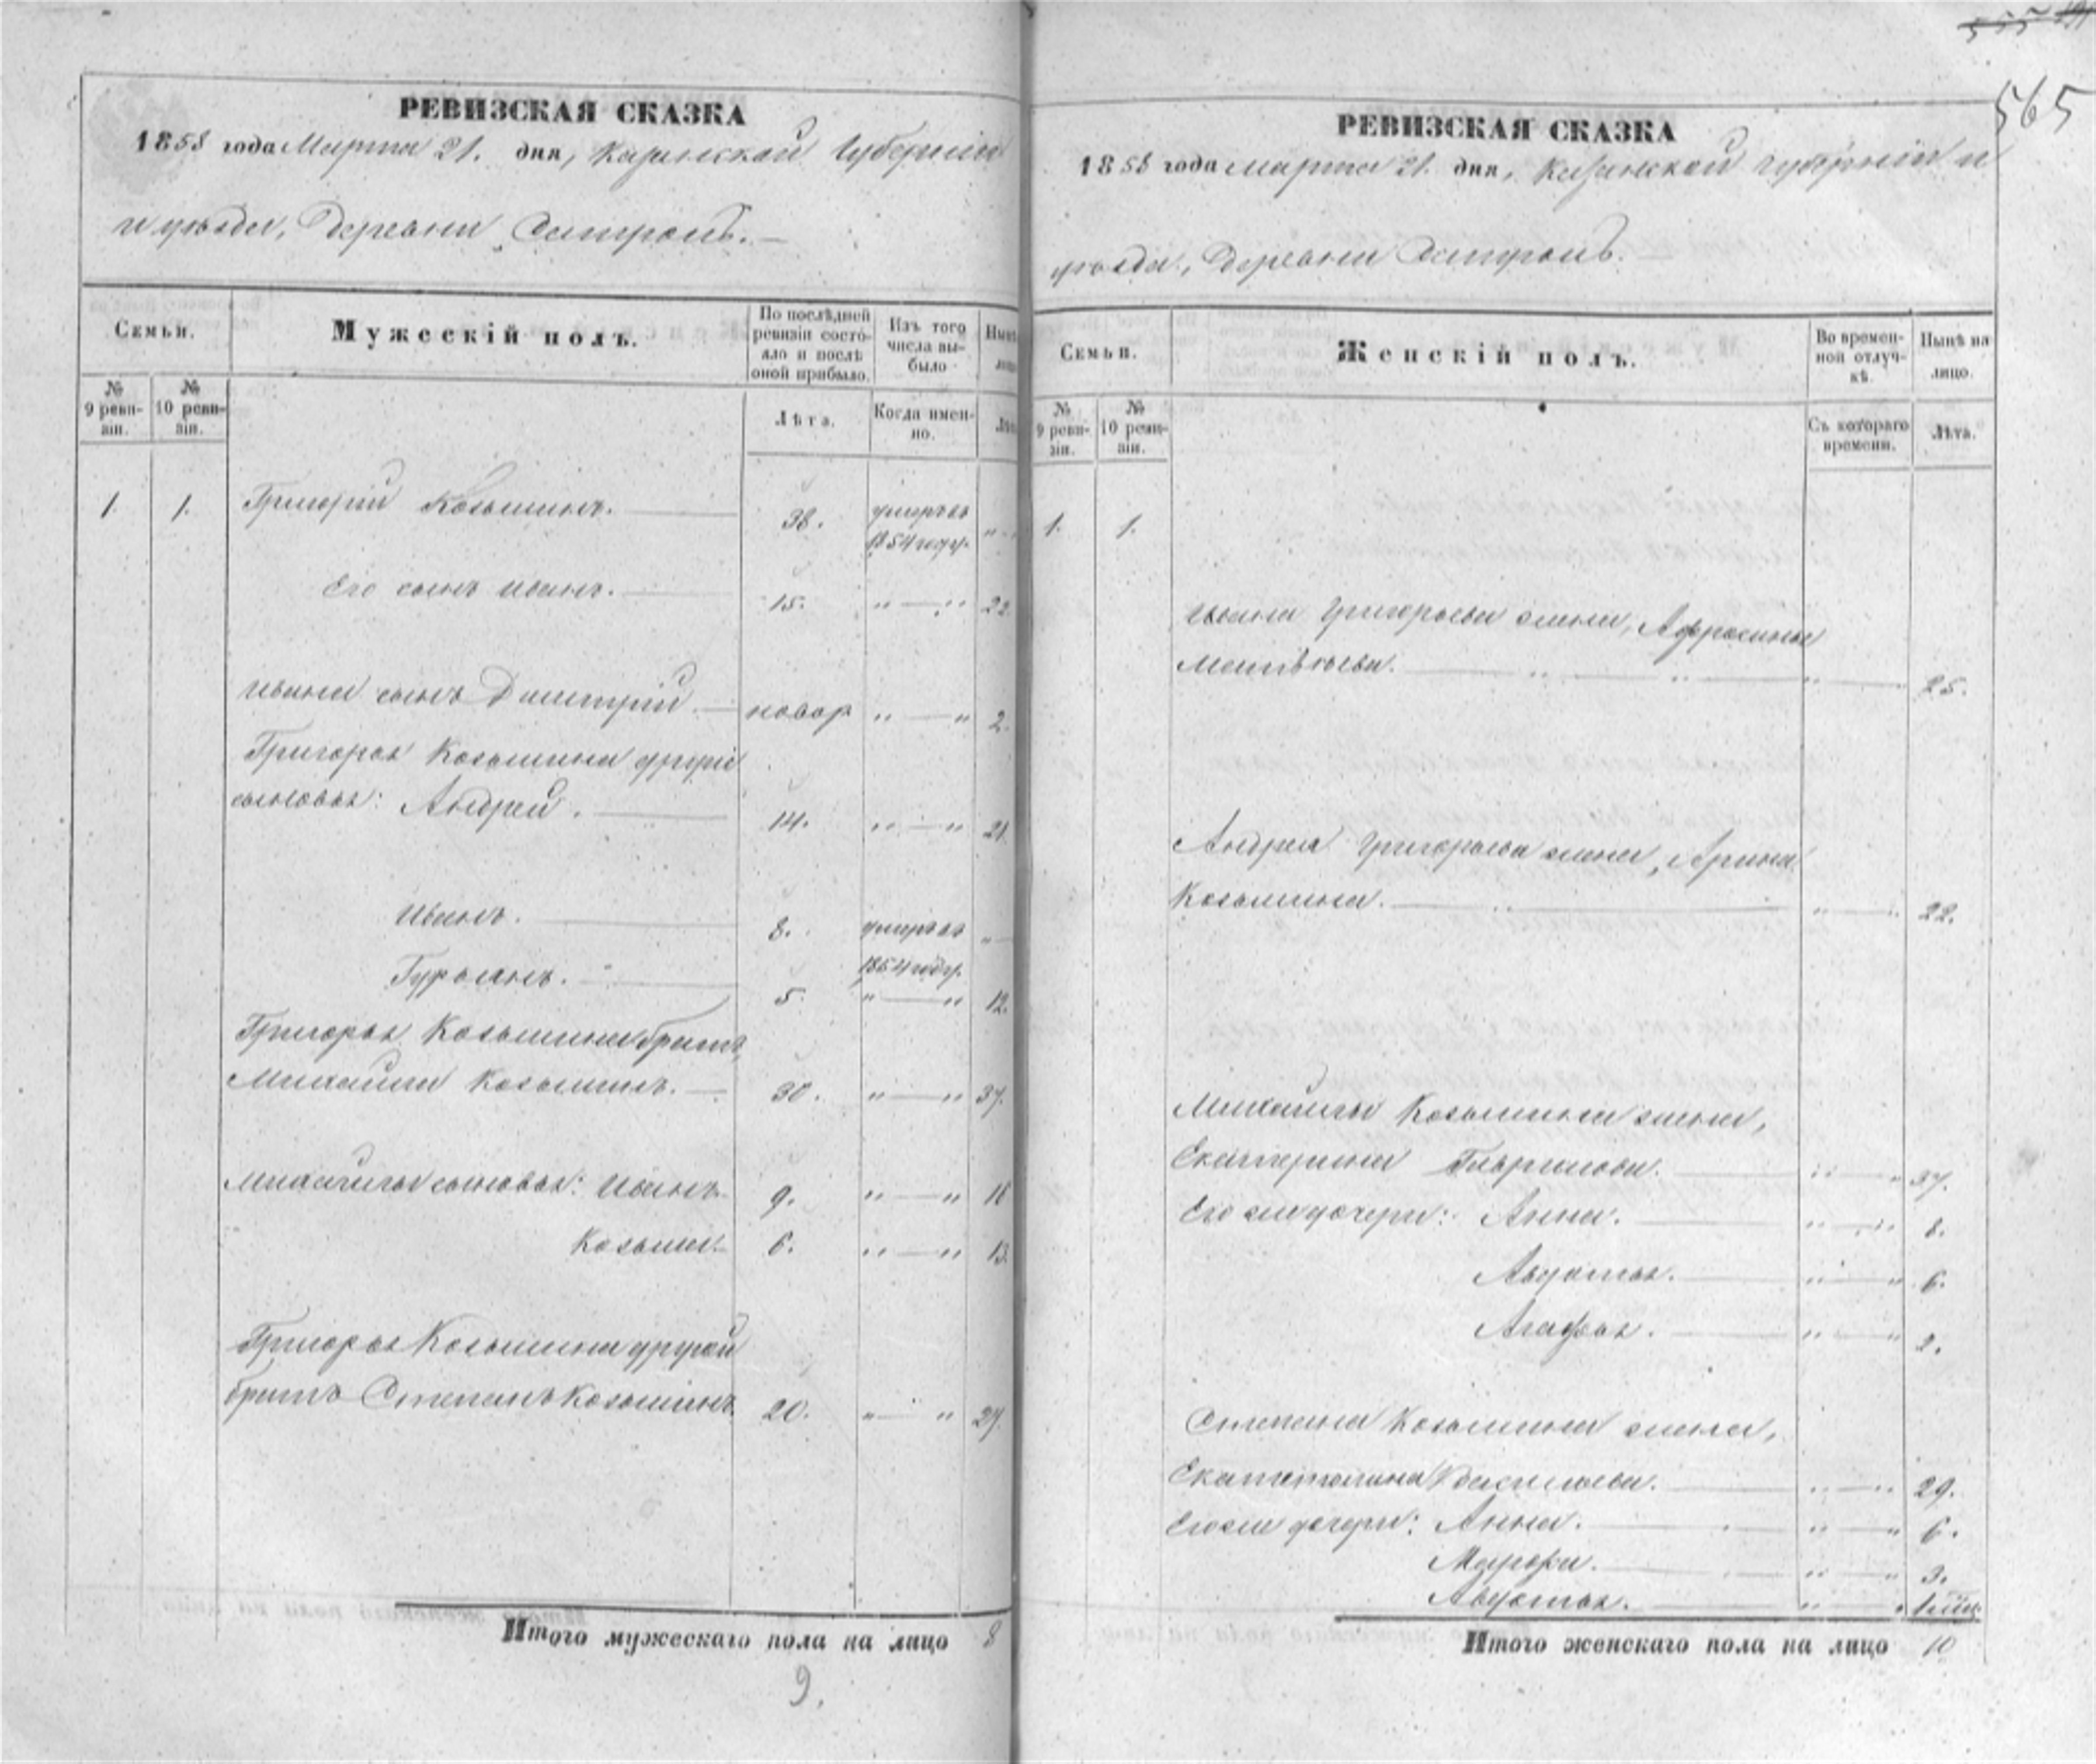 565
РЕВИЗСКАЯ СКАЗКА
1858 года Марта 21. дня, Казанской Губерніи
и уѣзда, Деревни
Семьи.
Мужескій полъ.
По послѣдней ревизіи состояло и послѣ оной прибыло.
Изъ того числа выбыло
№ 9 ревизіи.
№ 10 ревизіи.
Лѣта.
Когда именно.
1. 1. Григорій Козьминъ. 38. умеръ въ 1854 году. "
Его сынъ Иванъ. 15. " — " 22
Ивана сынъ Дмитрій. новор " — " 2.
Григорья Козьмина другіе
сыновья: Андрей. 14. " — " 21.
Иванъ. 8. умеръ въ 1854 году. "
Гурьянъ. 5. " — " 12.
Григорья Козьмина братъ,
Михайла Козьминъ. 30. " — " 37.
Михайлы сыновья: Иванъ 9. " — " 16
Козьма. 6. " — " 13.
Григорья Козьмина другой
братъ Степанъ Козьминъ. 20. " — " 27.
Итого мужескаго пола на лицо 8
9.
РЕВИЗСКАЯ СКАЗКА
1858 года марта 21. дня, Казанской губерніи и
уѣзда, Деревни
Семьи.
Женскій полъ.
Во временной отлучкѣ.
Нынѣ на лицо.
№ 9 ревизіи.
№ 10 ревизіи.
Съ котораго времени.
Лѣта.
1. 1.
Ивана Григорьева жена, Афросинья
Матвѣева. " — " 25.
Андрея Григорьева жена, Арина
Козьмина. " — " 22.
Михайлы Козьмина жена,
Екатерина Гаврилова. " — " 37.
Его же дочери: Анна. " — " 8.
Авдотья. " — " 6.
Агафья. " — " 2.
Степана Козьмина жена,
Екатерина Васильева. " — " 29.
Его же дочери: Анна. " — " 6.
Марфа. " — " 3.
Авдотья. " — "
Итого женскаго пола на лицо 10